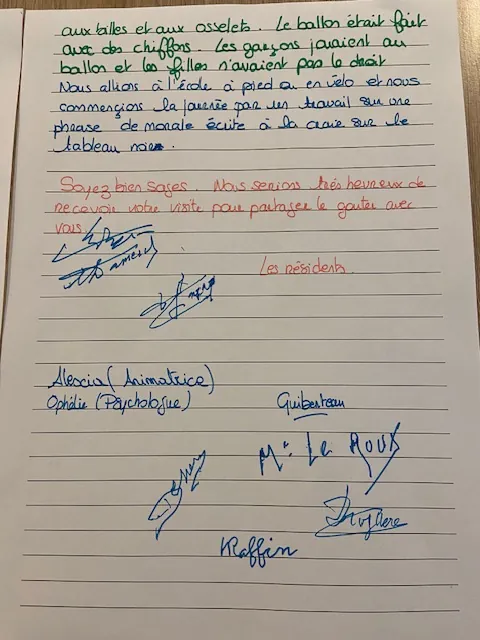 aux billes et aux osselets. Le ballon était fait
avec des chiffons. Les garçons jouaient au
ballon et les filles n'avaient pas le droit
Nous allions à l'école à pied ou en vélo et nous
commençions la journée par un travail sur une
phrase de morale écrite à la craie sur le
tableau noir.
Soyez bien sages. Nous serions très heureux de
recevoir votre visite pour partager le gouter avec
vous.
Les résidents.
Alescia (Animatrice)
Ophélie (Psychologue)
Guiberteau
Mr Le Roux
Raffin